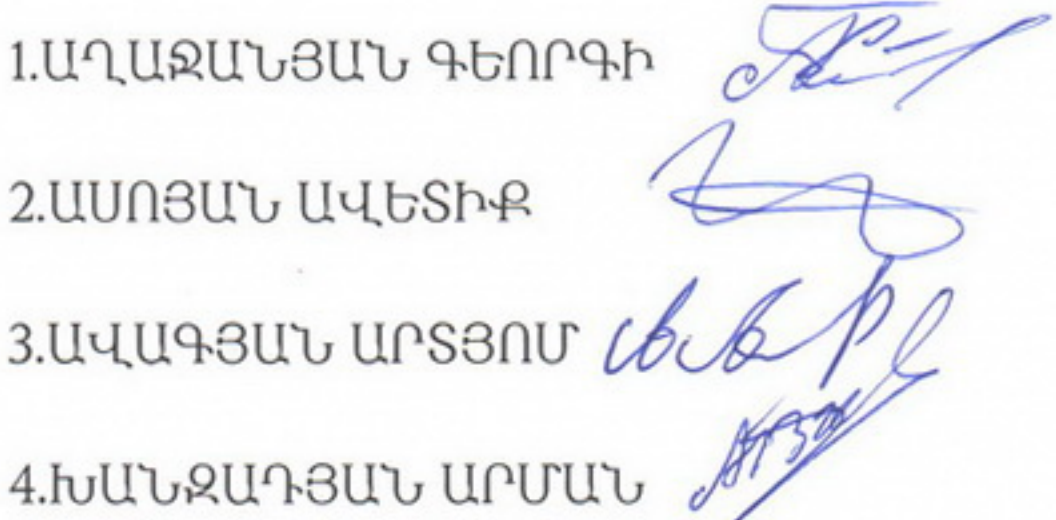 1.ԱՂԱՋԱՆՅԱՆ ԳԵՈՐԳԻ
2.ԱՍՈՅԱՆ ԱՎԵՏԻՔ
3.ԱՎԱԳՅԱՆ ԱՐՏՅՈՄ
4.ԽԱՆՋԱԴՅԱՆ ԱՐՄԱՆ